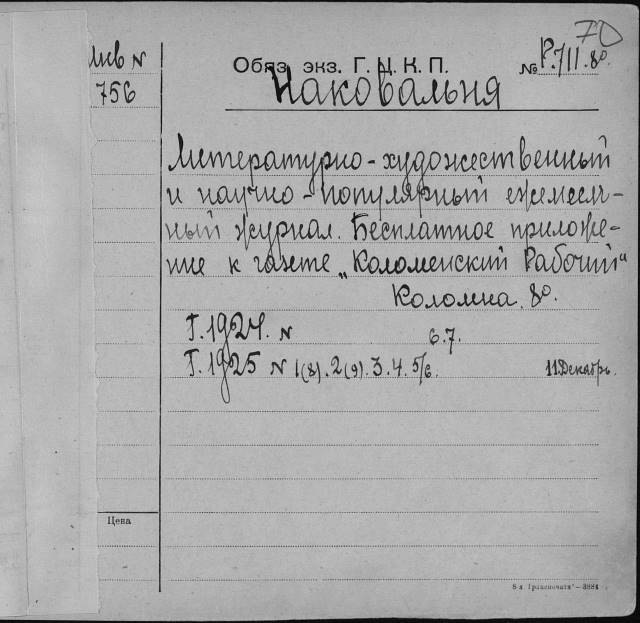 70
Обяз. экз. Г. Ц. К. П.
№ Р.711.80.
Инв N
756
Наковальня
Литературно-художественный
и научно-популярный ежемесяч-
ный журнал. Бесплатное приложе-
ние к газете „Коломенский Рабочий"
Коломна. 8º.
Г. 1924. N 6.7.
Г. 1925 N 1(8). 2(9). 3. 4. 5/6. 11 Декабрь.
Цена
3884